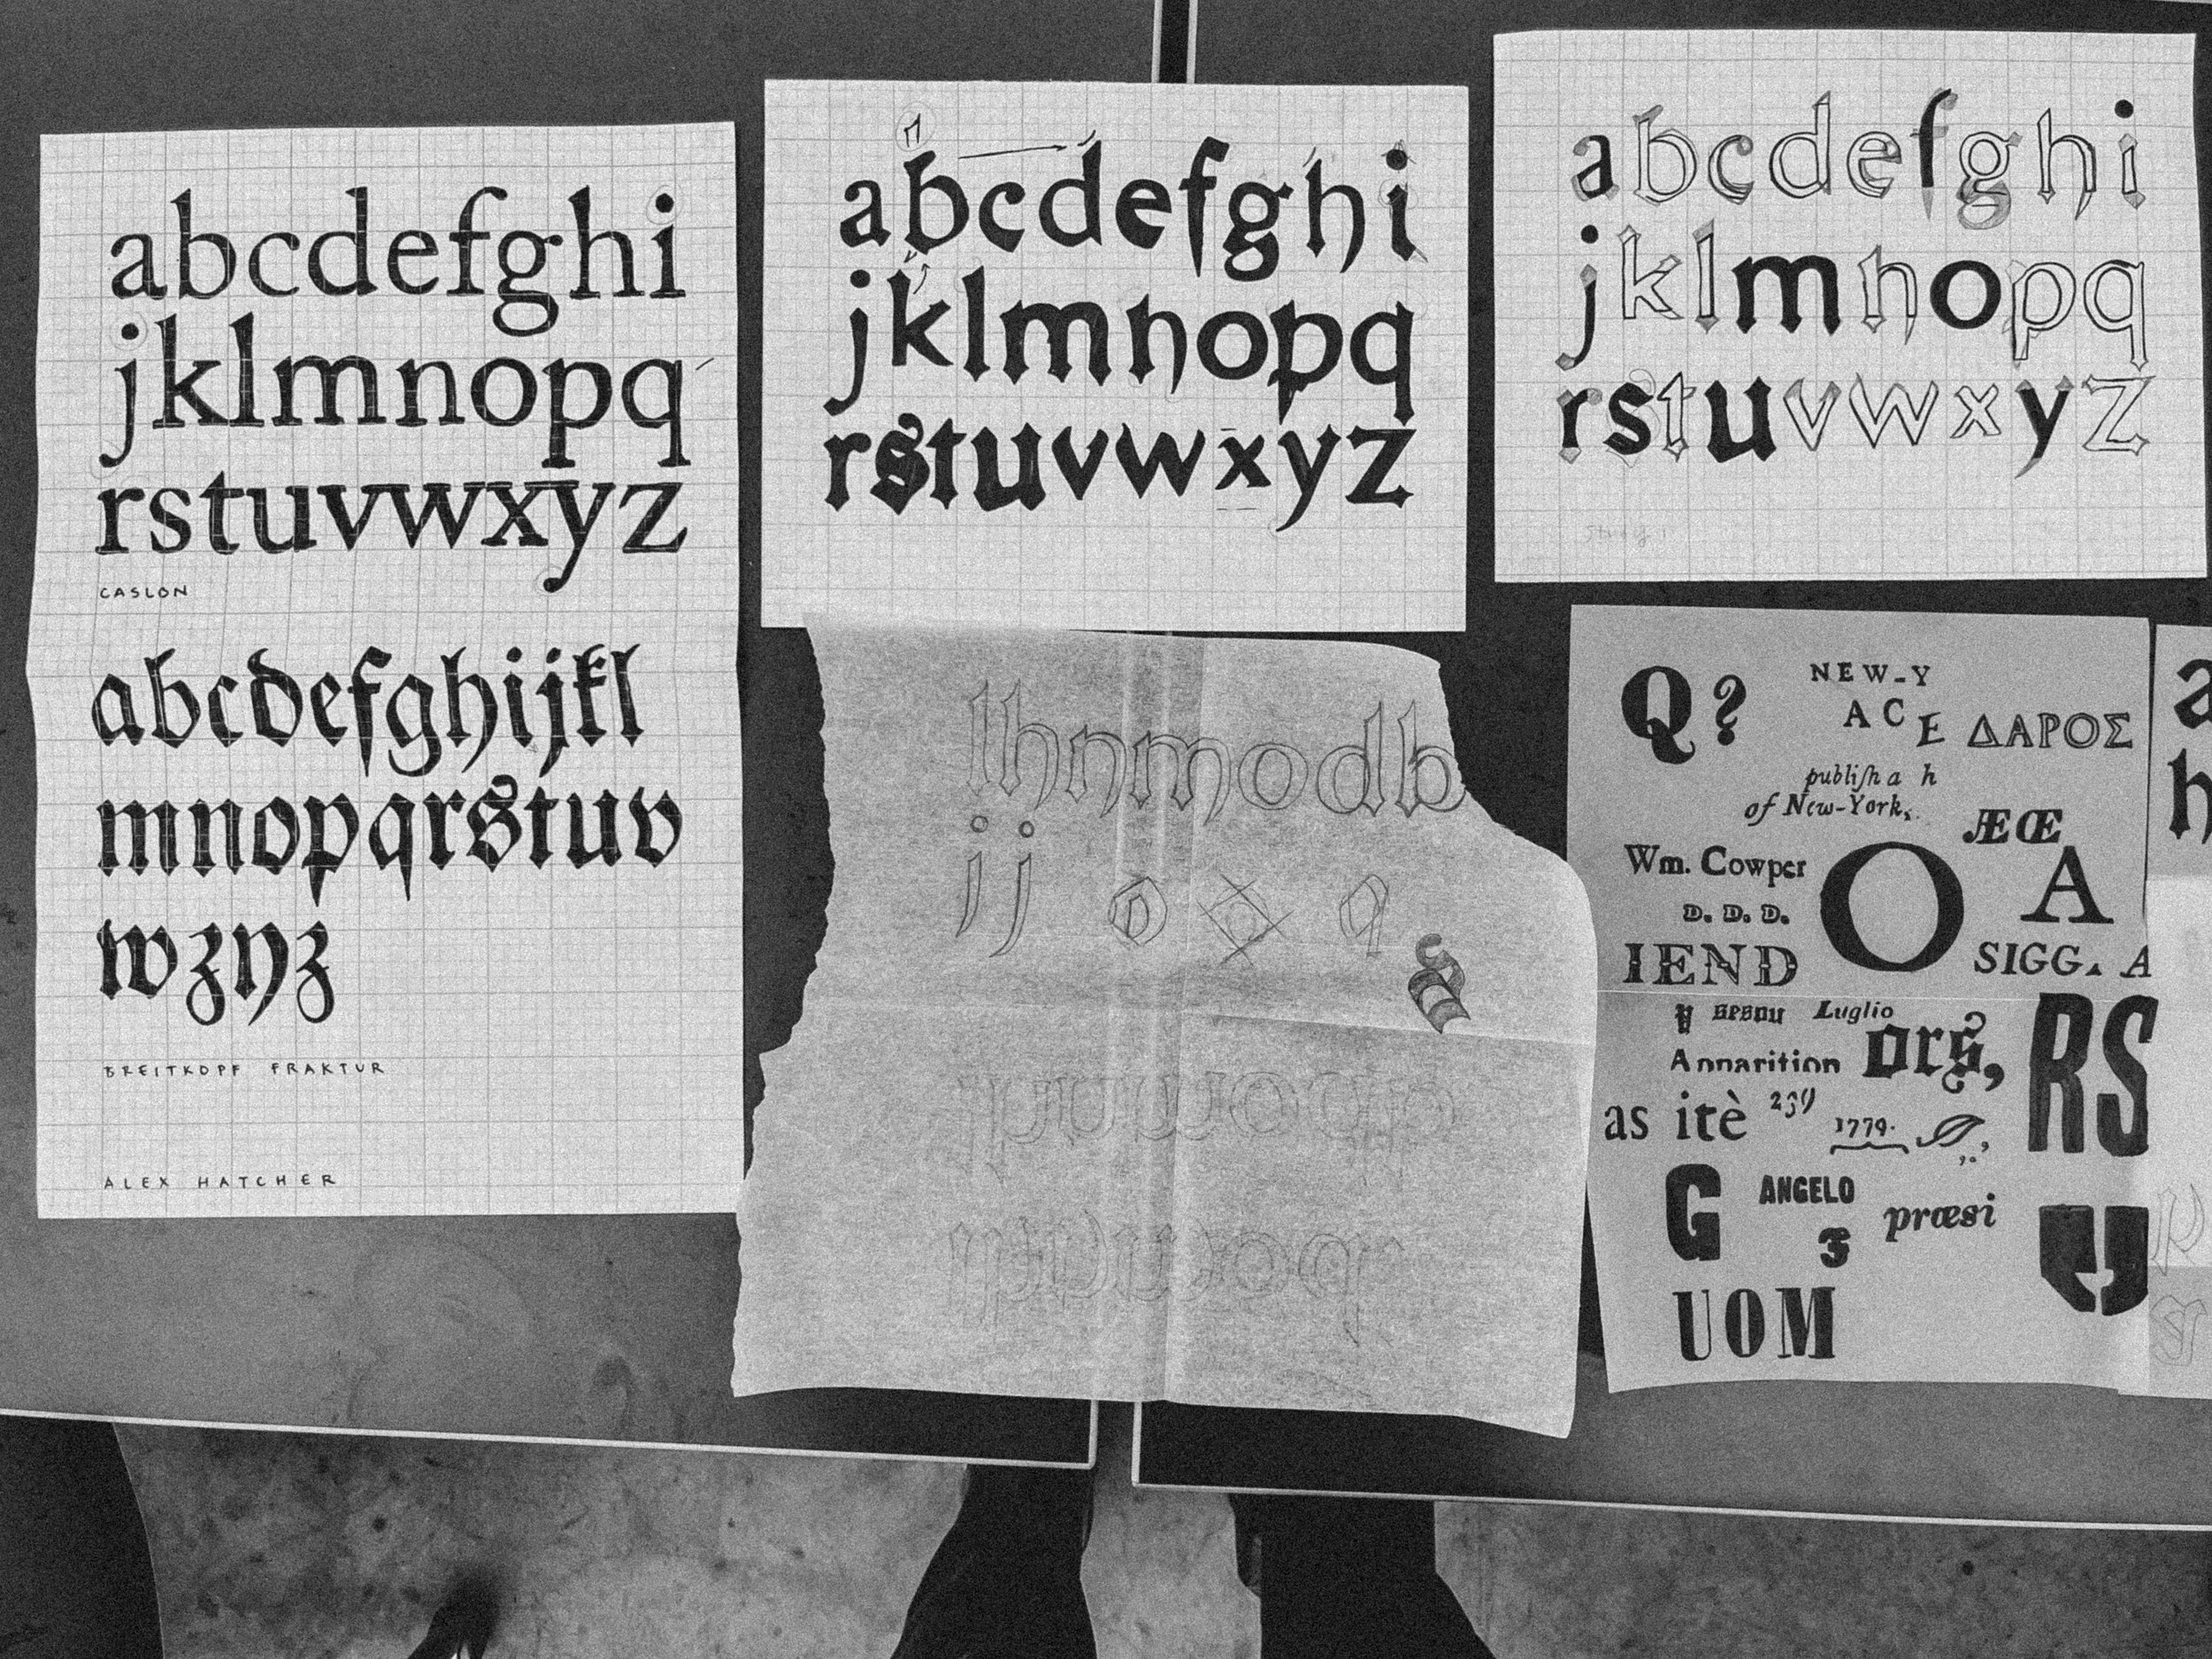 abcdefghi
jklmnopq
rstuvwxyz
CASLON
abcdefghijkl
mnopqrstuv
wxyz
BREITKOPF FRAKTUR
ALEX HATCHER
abcdefghi
jklmnopq
rstuvwxyz
abcdefghi
jklmnopq
rstuvwxyz
lhnmodb
ij o q
s
Q?
NEW-Y
ACE
ΔΑΡΟΣ
publiſh a h
of New-York,
ÆŒ
Wm. Cowper
D. D. D.
O
A
IEND
SIGG. A
Luglio
ors,
RS
as itè
1779.
G
ANGELO
3
præsi
UOM
a
h